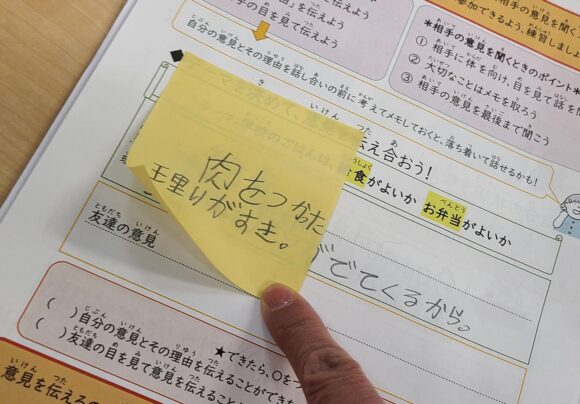 を伝えよう
の目を見て伝えよう
参加できるよう、練習しまし
*相手の意見を聞くときのポイント*
① 相手に体を向け、目を見て話を
② 大切なことはメモを取ろう
③ 相手の意見を最後まで聞こう
自分の意見とその理由を話し合いの前に考えてメモしておくと、落ち着いて話せるかも!
え合おう!
食がよいか お弁当がよいか
肉をつかた
王里りがすき。
友達の意見
でてくるから。
★できたら、○をつ
( )自分の意見とその理由を伝えることができた
( )友達の目を見て意見を伝えること
意見を伝える